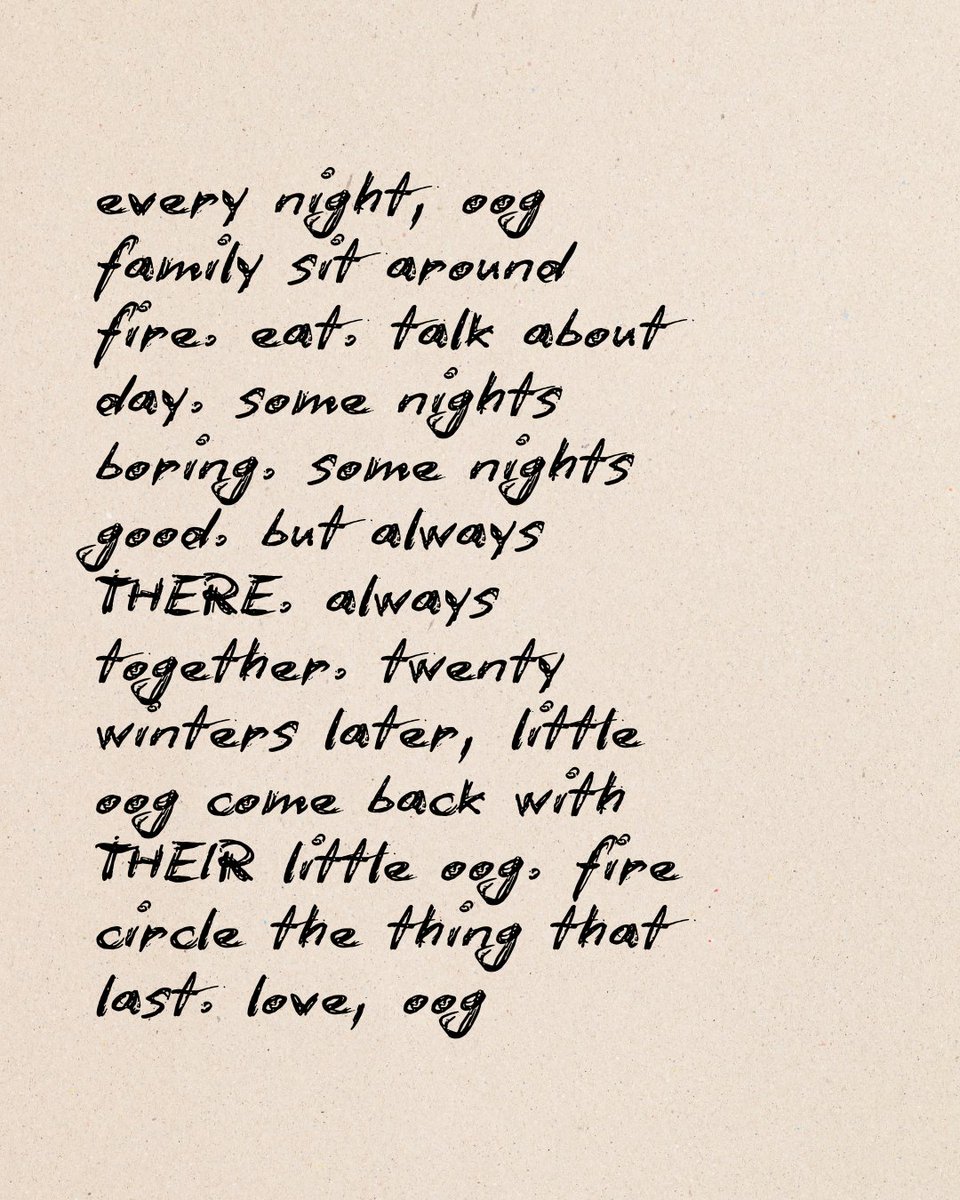 every night, oog
family sit around
fire. eat. talk about
day. some nights
boring. some nights
good. but always
THERE. always
together. twenty
winters later, little
oog come back with
THEIR little oog. fire
circle the thing that
last. love, oog